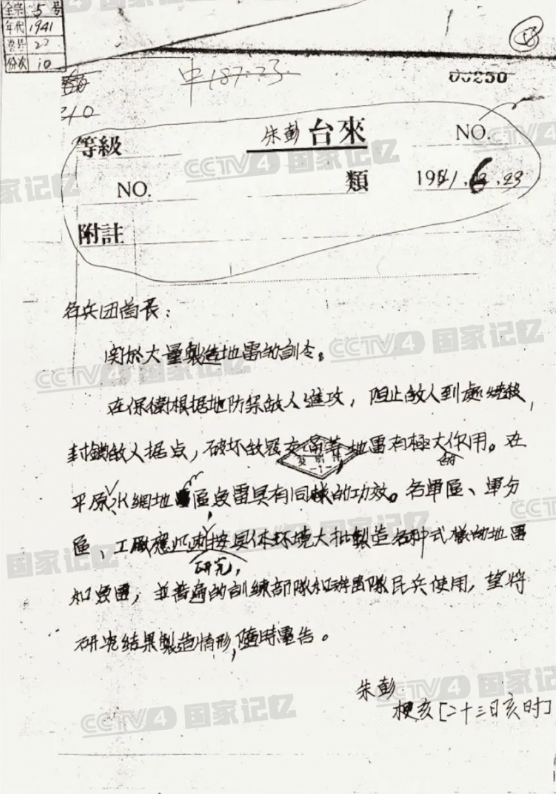 全宗 5 号
年代 1941
卷号 27
份次 10
中187.23
00250
210
等級 朱彭台來 NO.
NO. 類 1941.6.23
附註
各兵团首長:
関於大量製造地雷的訓令。
在保衛根据地防禦敌人進攻,阻止敌人到處燒殺,
封鎖敌人据点,破坏敌 交通等地雷有極大的作用。在
平原水網地區 雷具有同樣的功效。各軍區、軍分
區、工廠應 研究,按具体环境大批製造各种式樣的地雷
和 雷,並普遍的訓練部隊和 民兵使用,望將
研究結果製造情形,隨時電告。
朱彭
梗亥[二十三日亥时]
CCTV4 国家记忆